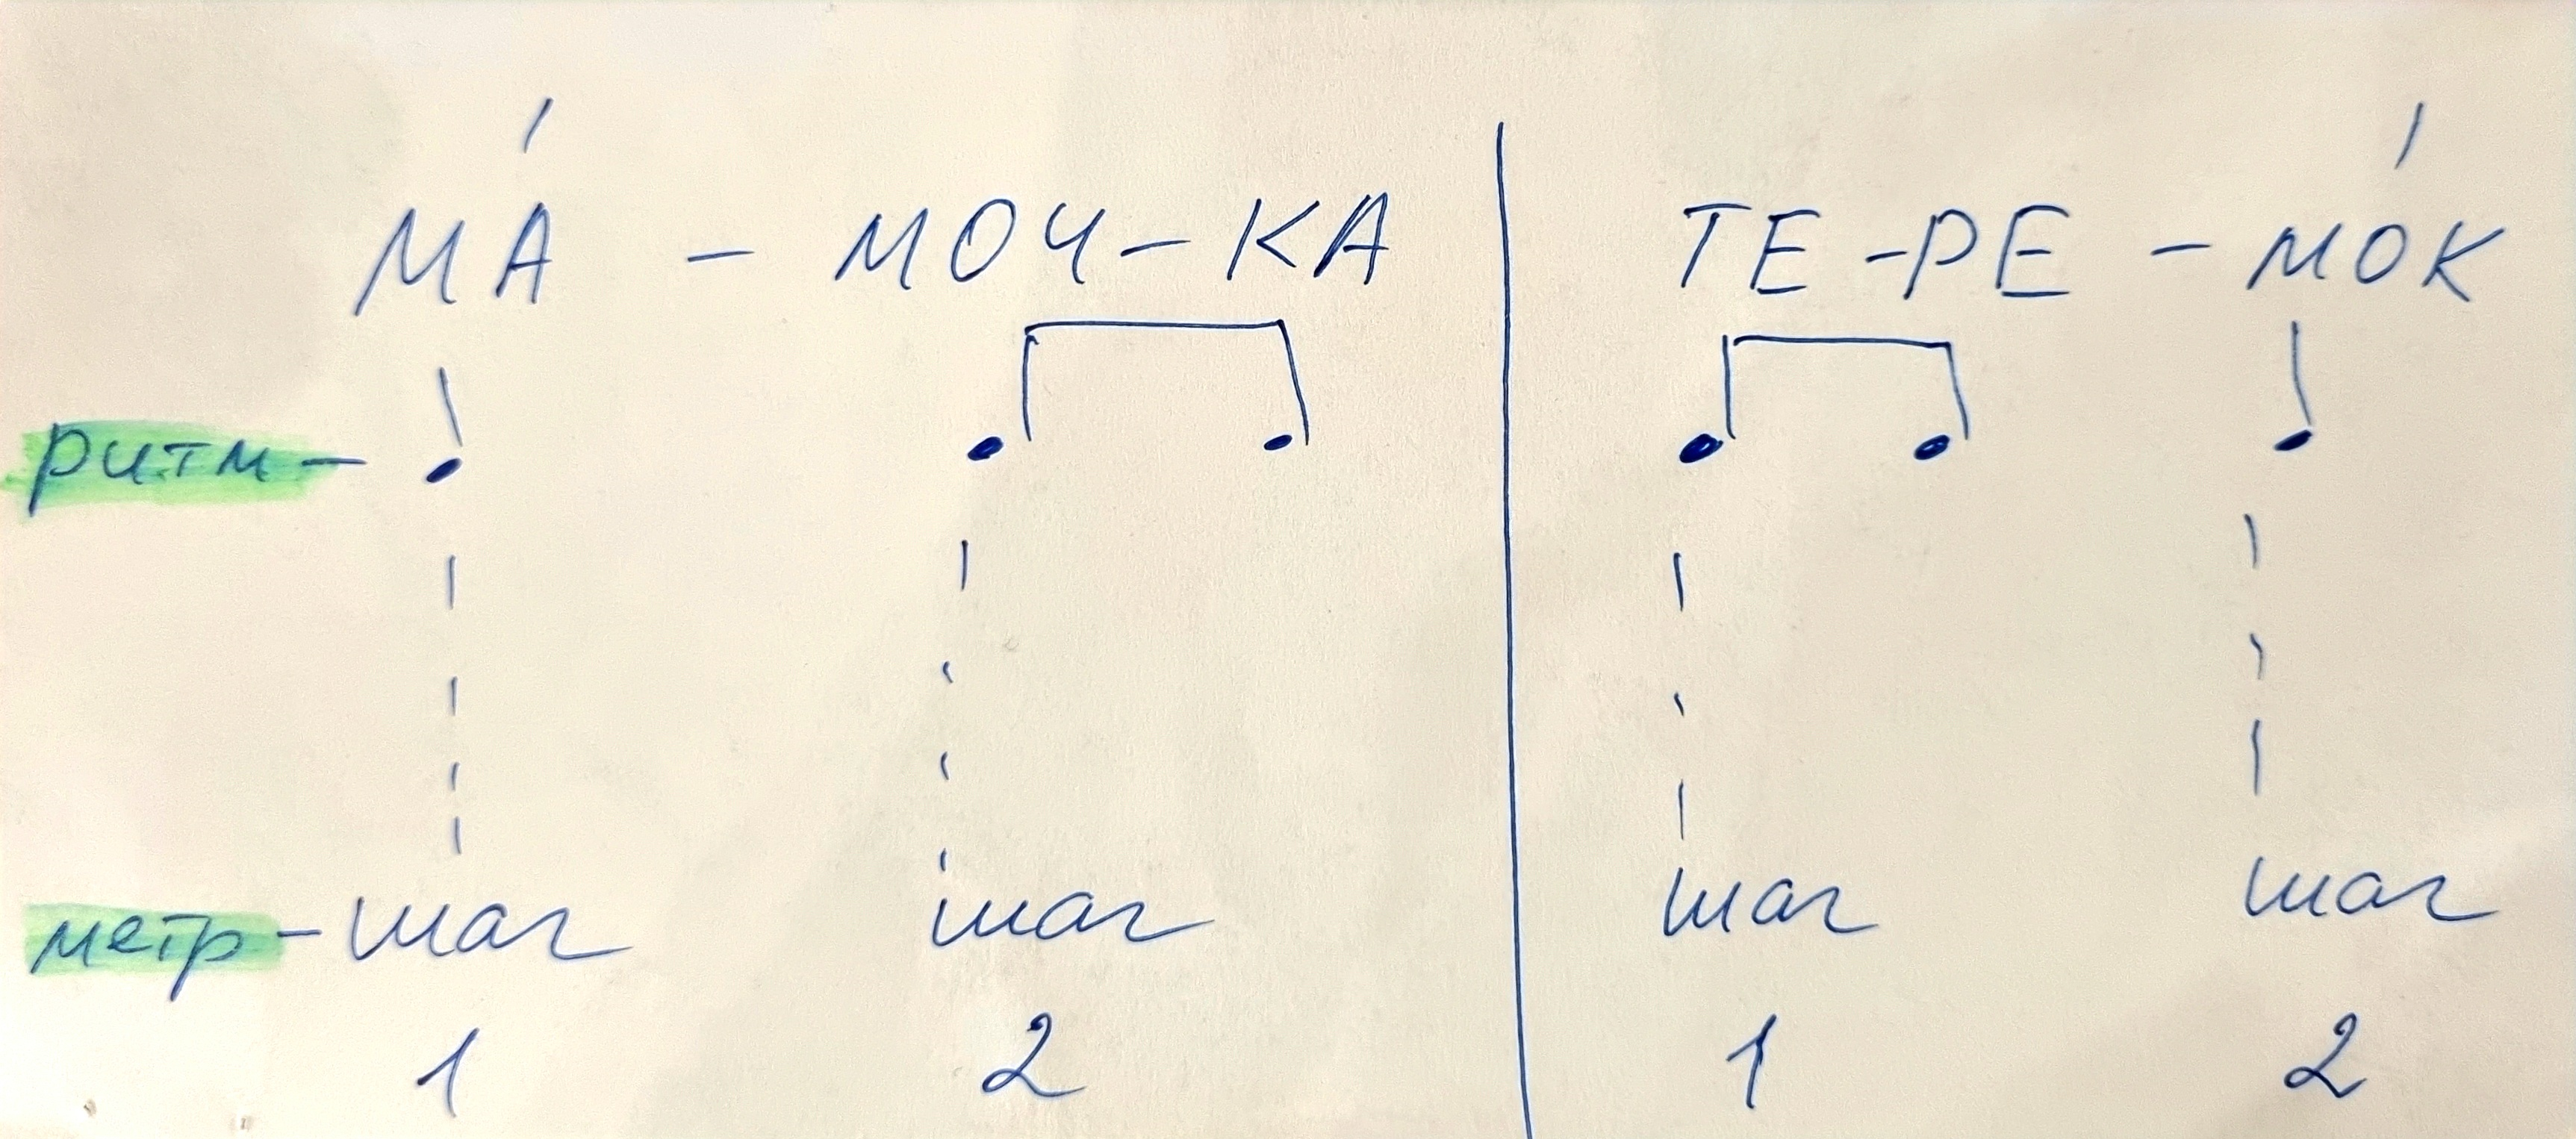 МА́ - МОЧ - КА ТЕ - РЕ - МО́К
ритм -
метр - шаг шаг шаг шаг
1 2 1 2